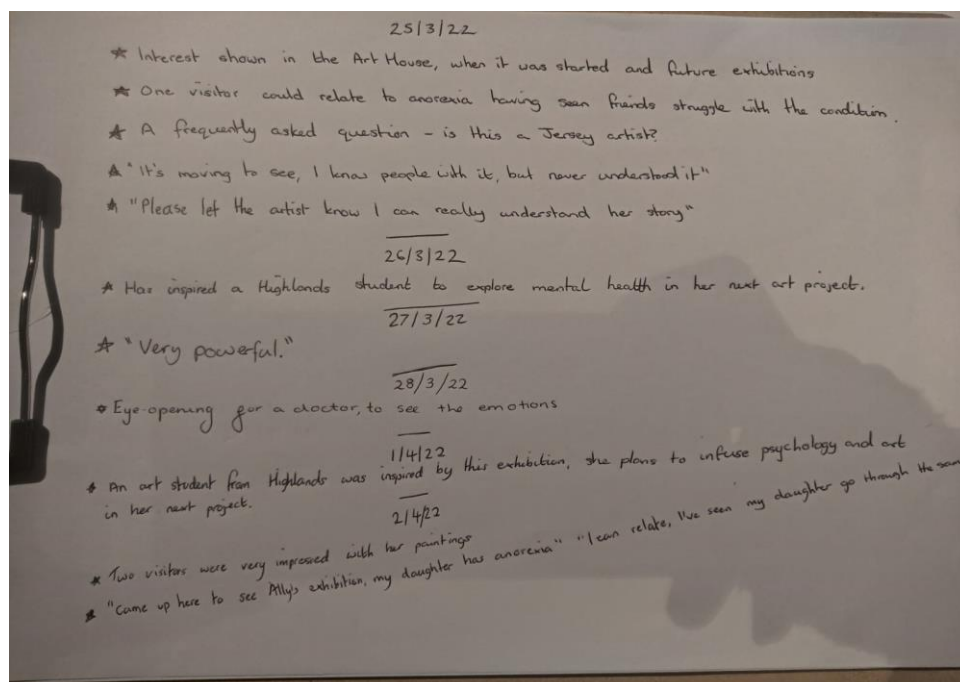 25/3/22
★ Interest shown in the Art House, when it was started and future exhibitions
★ One visitor could relate to anorexia having seen friends struggle with the condition.
★ A frequently asked question - is this a Jersey artist?
★ "It's moving to see, I know people with it, but never understood it"
★ "Please let the artist know I can really understand her story"
26/3/22
★ Has inspired a Highlands student to explore mental health in her next art project.
27/3/22
★ "Very powerful."
28/3/22
★ Eye-opening for a doctor, to see the emotions
1/4/22
★ An art student from Highlands was inspired by this exhibition, she plans to infuse psychology and art
in her next project.
2/4/22
★ Two visitors were very impressed with her paintings
★ "Came up here to see Ally's exhibition, my daughter has anorexia" "I can relate, I've seen my daughter go through the sam